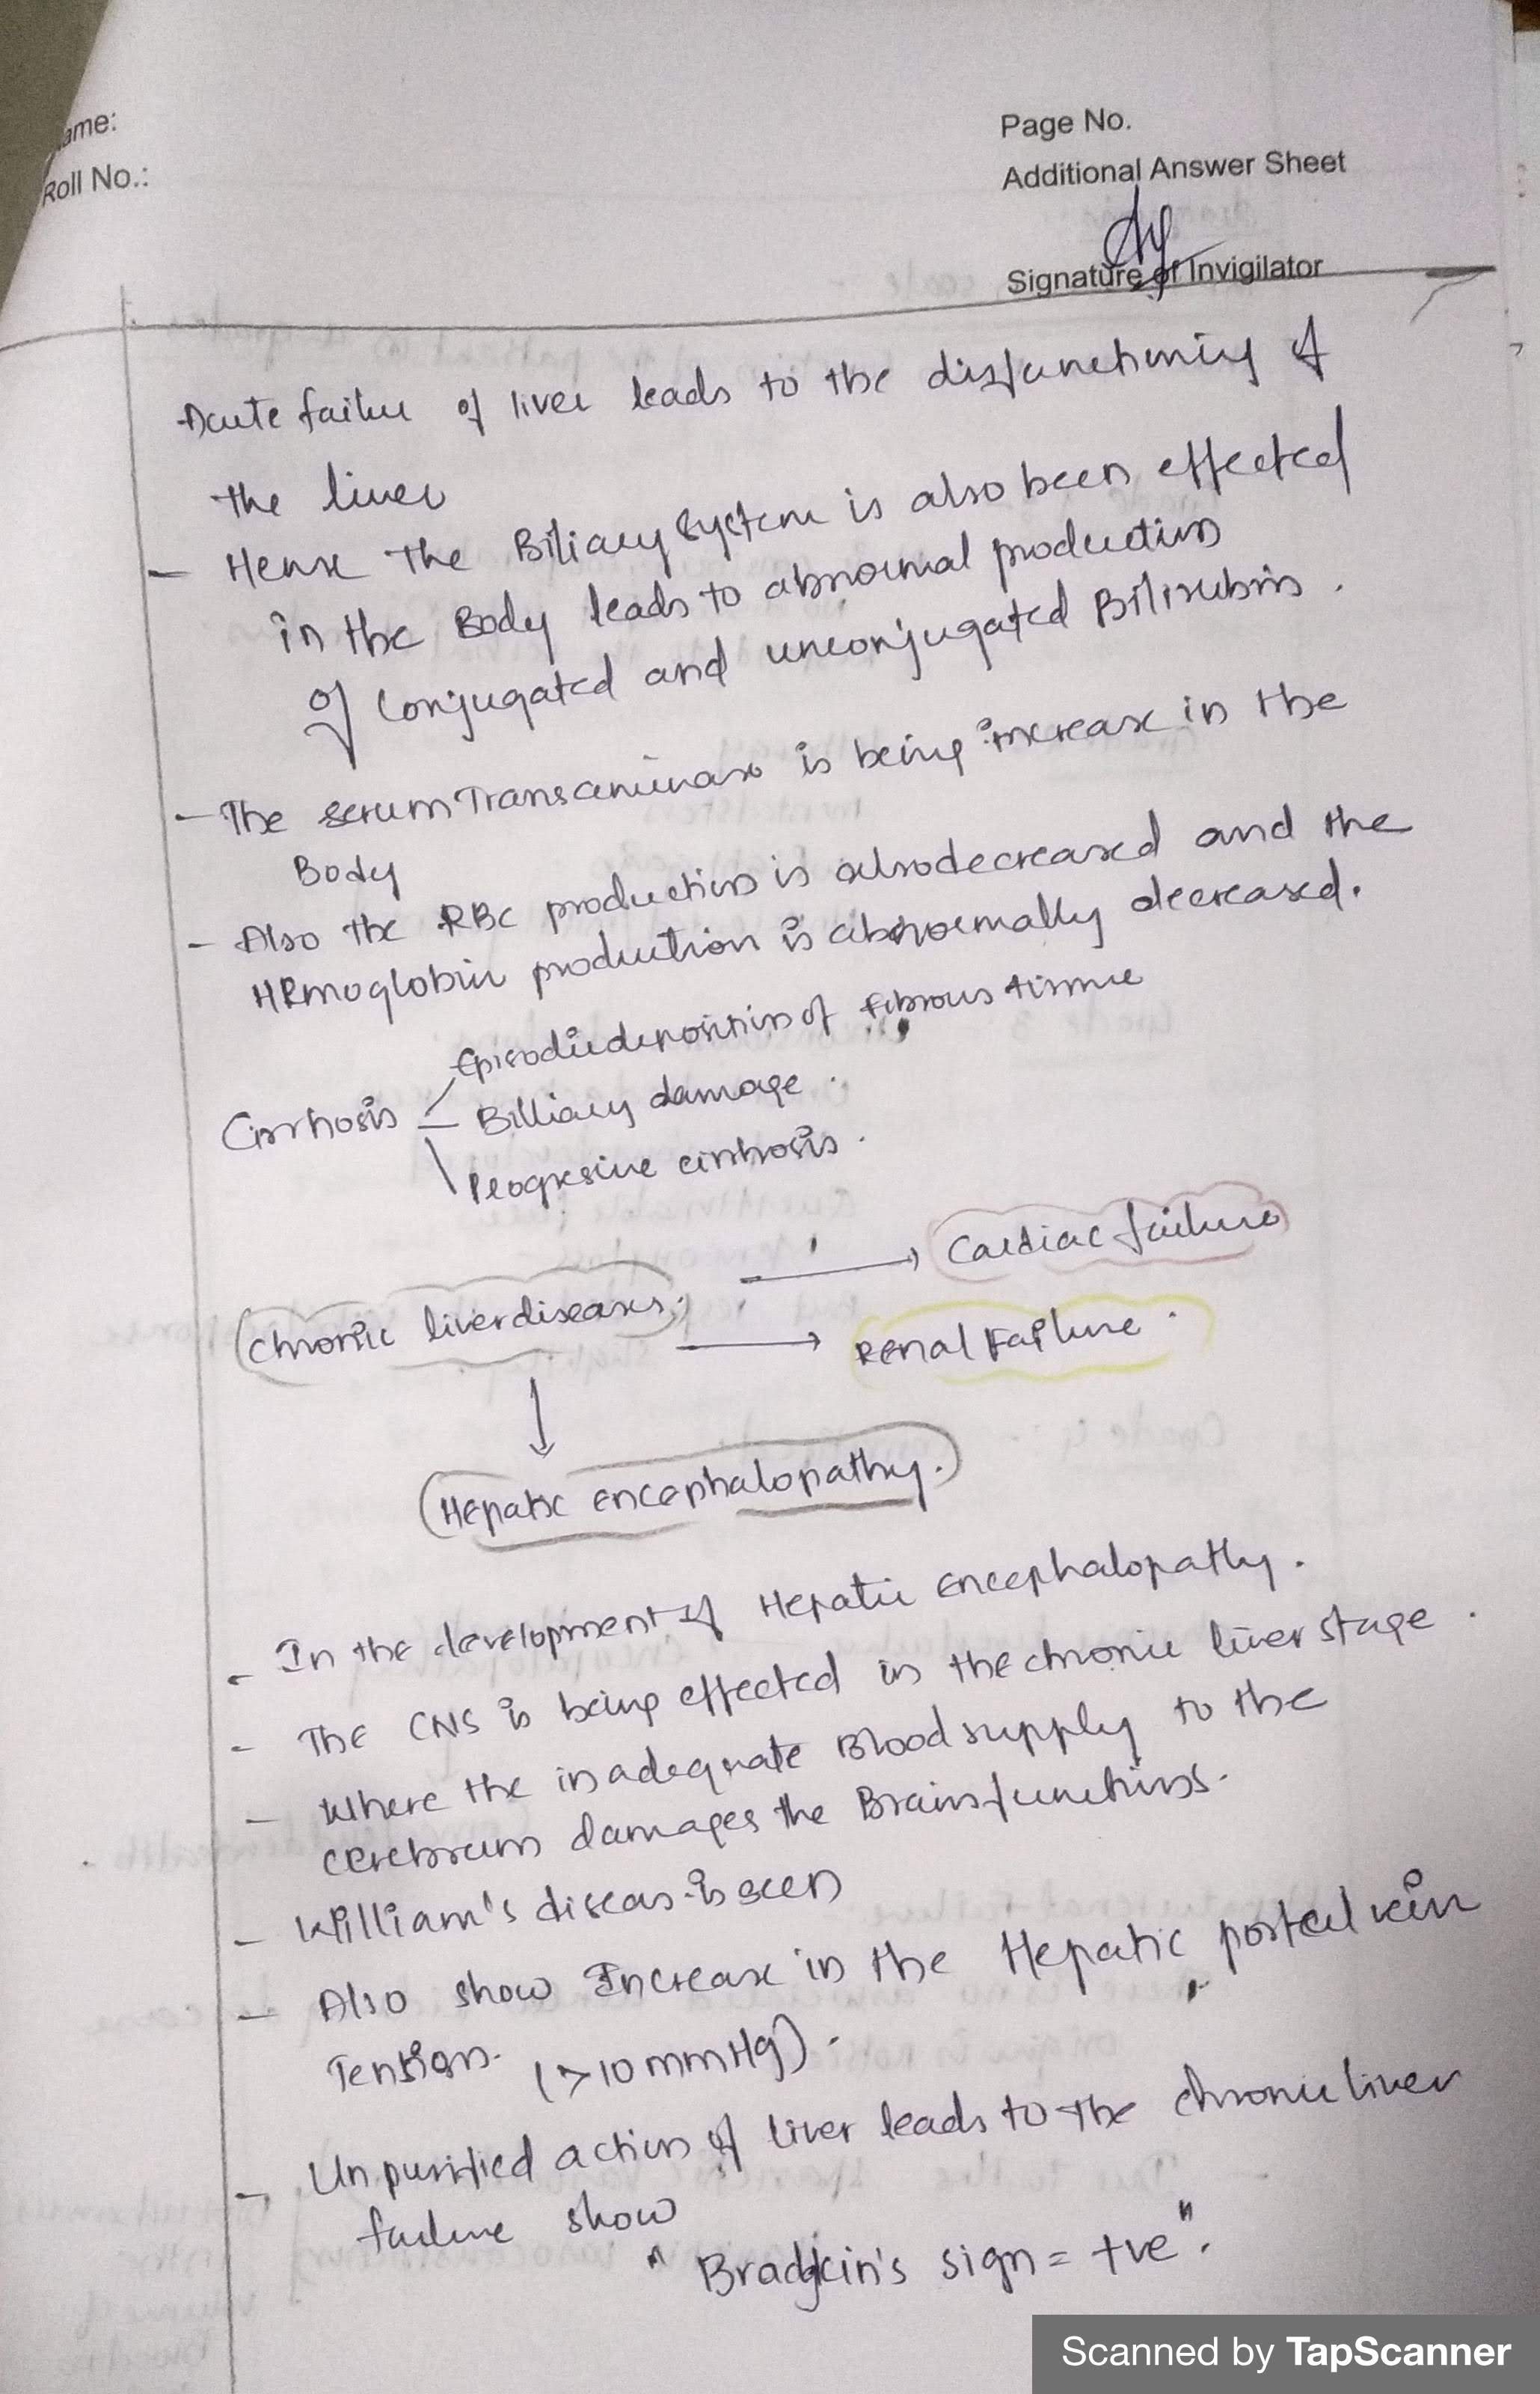 ame:
Roll No.:
Page No.
Additional Answer Sheet
Signature of Invigilator
Acute failure of liver leads to the disfunctioning of
the liver
- Hense the Biliary system is also been effected
in the Body leads to abnormal production
of conjugated and unconjugated Bilirubin.
- The serum Transaminase is being increase in the
Body
- Also the RBC production is also decreased and the
HEmoglobin production is abnormally decreased.
Cirrhosis
Episodic deposition of fibrous tissue
- Billiary damage.
Progresive cirrhosis.
Chronic liver diseases. → Cardiac failure
→ Renal Failure.
↓
Hepatic encephalopathy.
- In the development of Hepatic Encephalopathy.
- The CNS is being effected in the chronic liver stage.
- Where the inadequate Blood supply to the
cerebrum damages the Brain functions.
- William's diseas is seen
- Also show Increase in the Hepatic portal vein
Tension. (>10 mmHg).
- Unpurified action of liver leads to the chronic liver
failure show
" Bradykin's sign = +ve".
Scanned by TapScanner